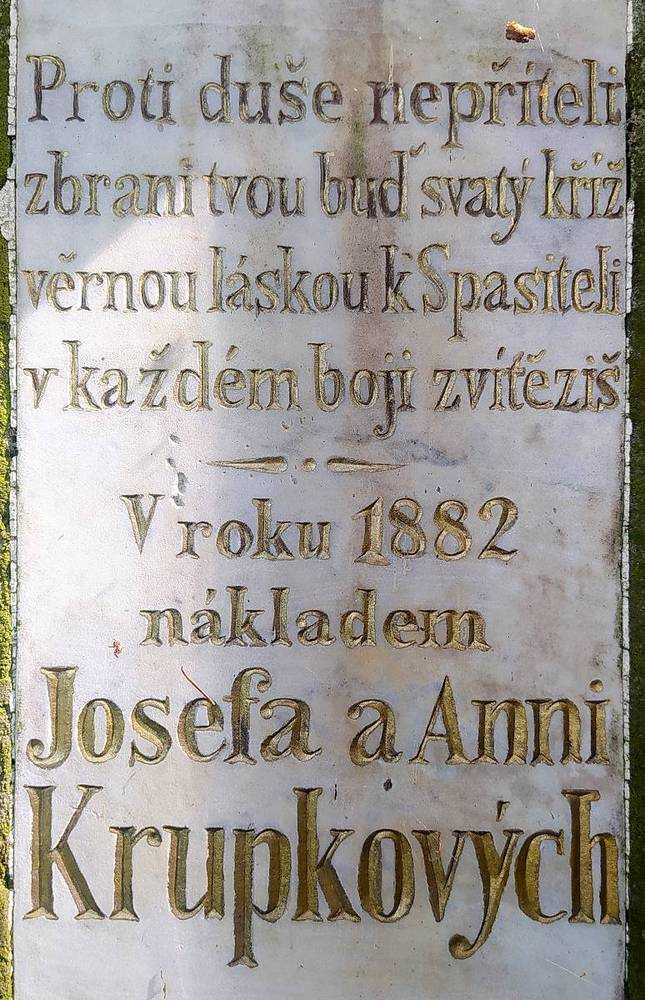 Proti duše nepříteli
zbraní tvou buď svatý kříž
věrnou láskou k Spasiteli
v každém boji zvítěziš
V roku 1882
nákladem
Josefa a Anni
Krupkových